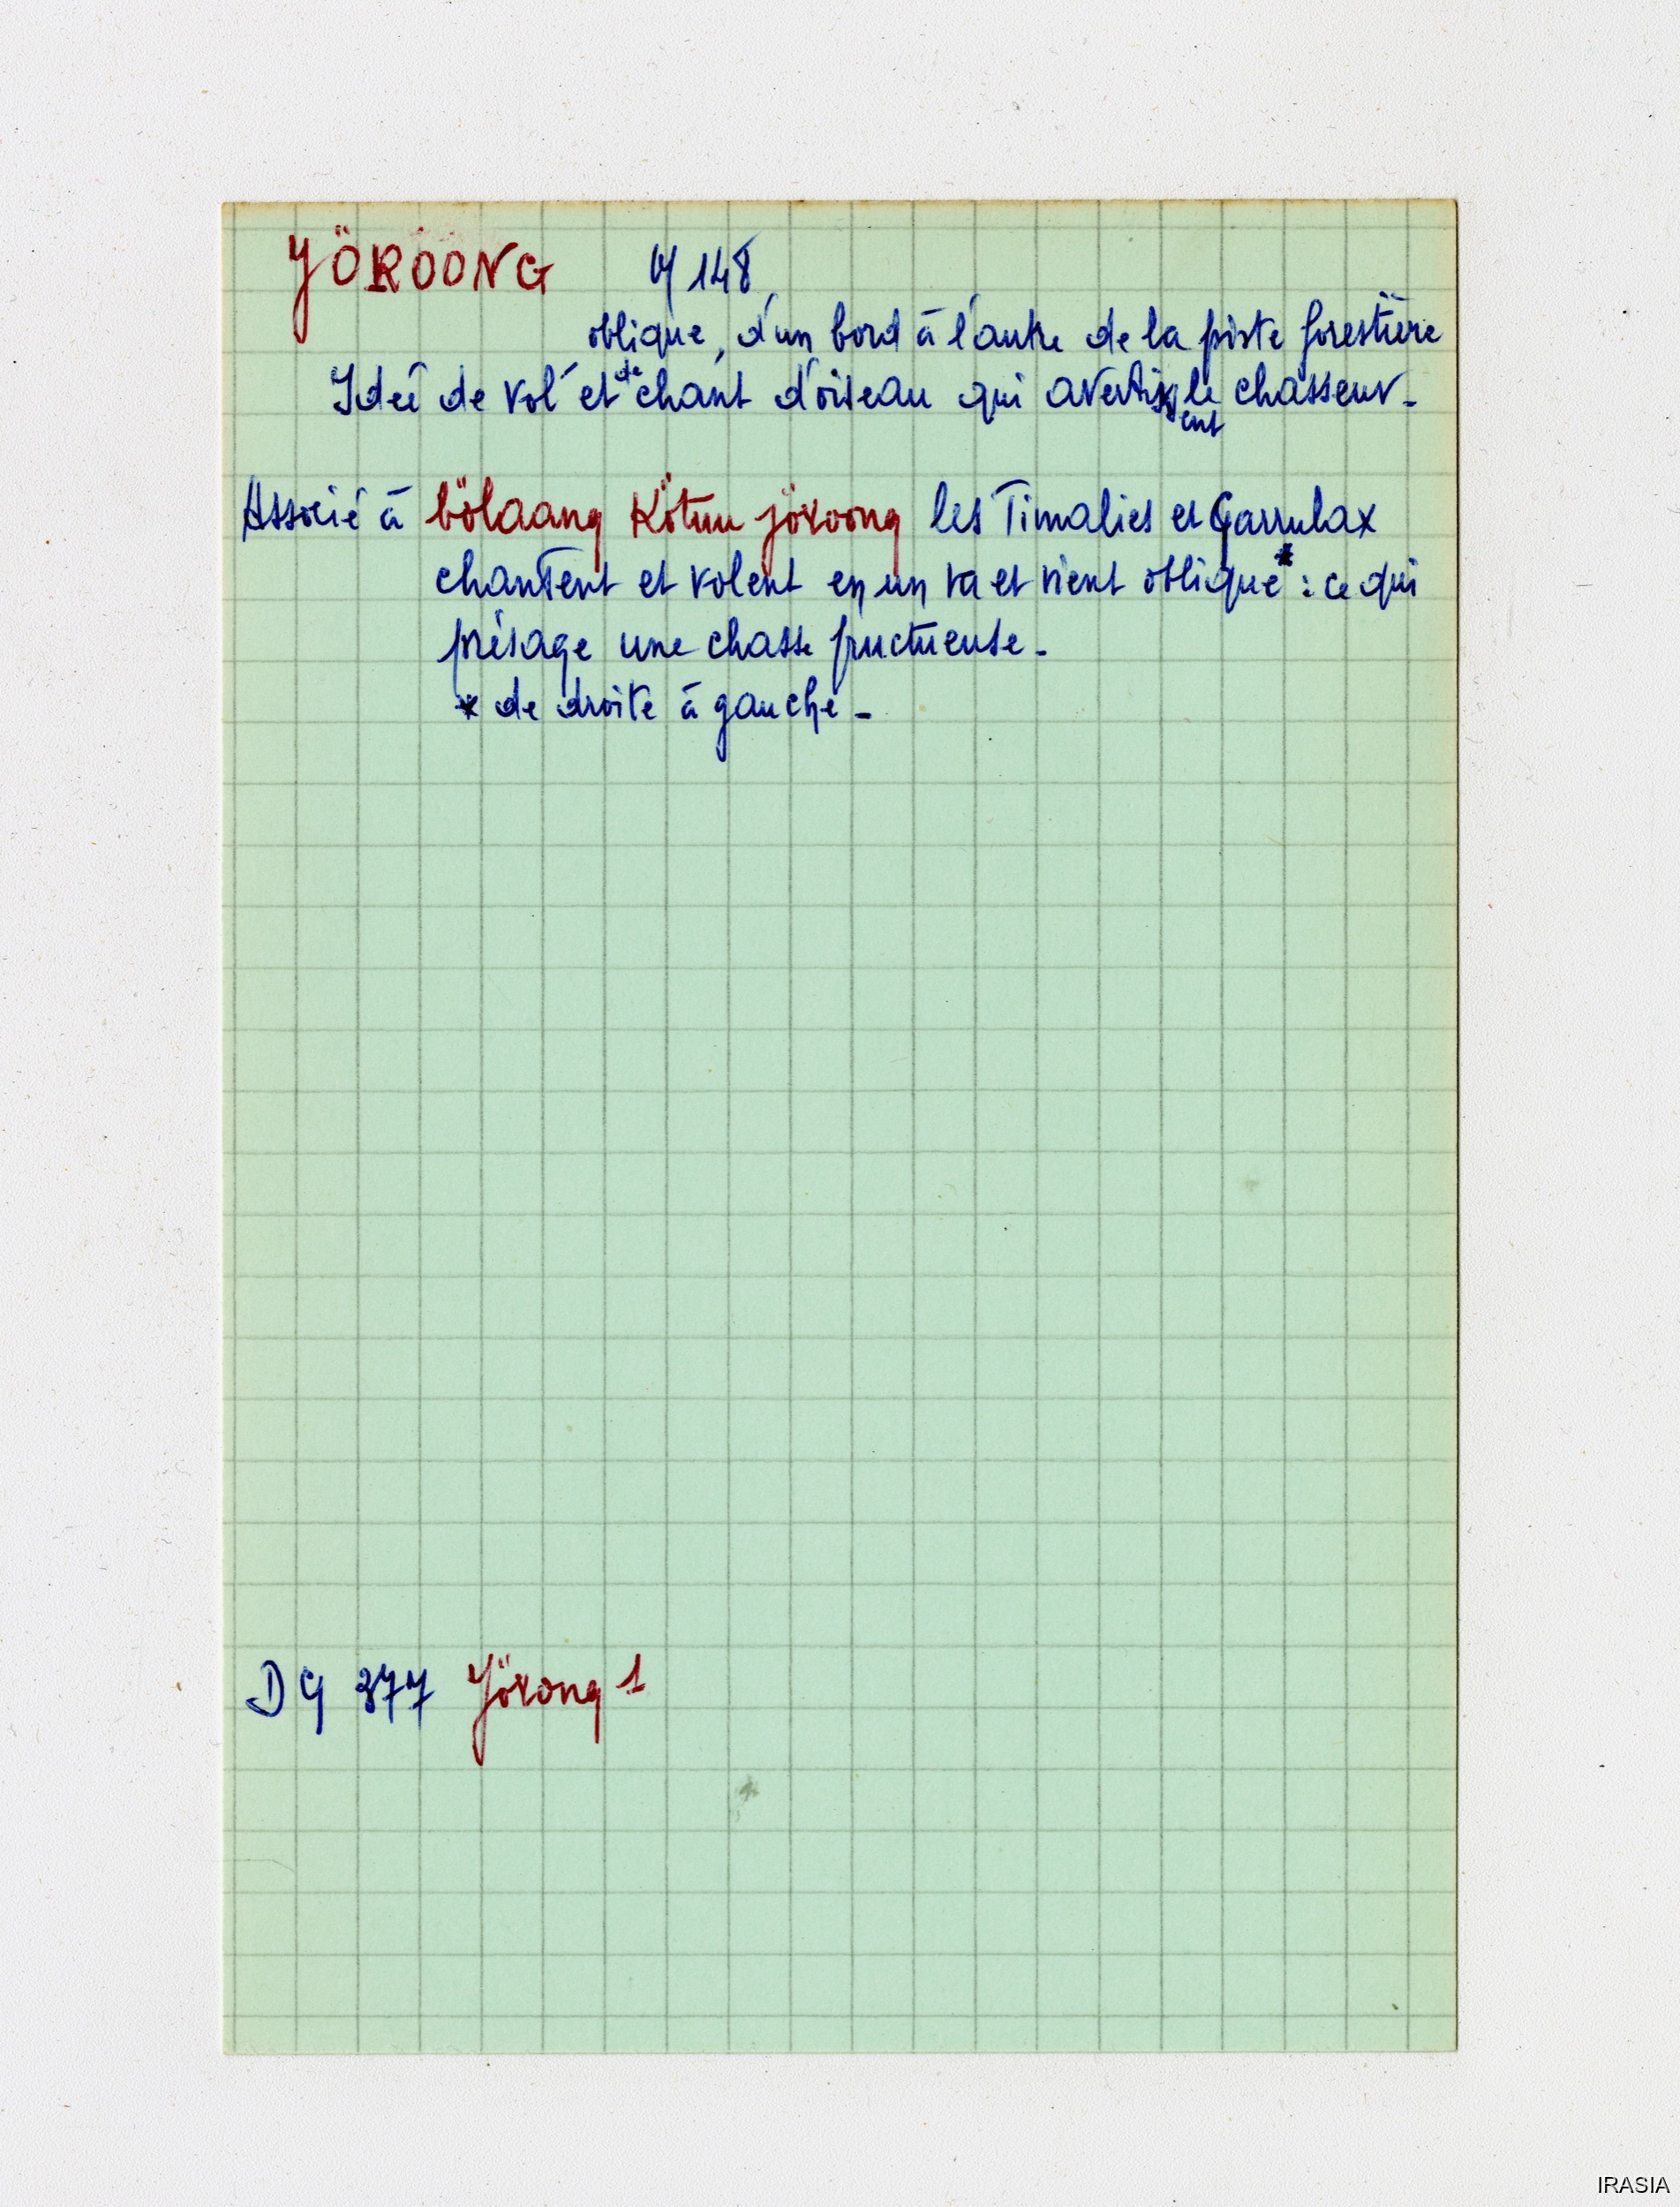 YÖROONG Y 148
oblique, d'un bord à l'autre de la piste forestière
Idée de vol et de chant d'oiseau qui avertissent le chasseur.
Associé à bölaang Kötuu yöroong les Timalies et Garrulax
chantent et volent en un va et vient oblique* : ce qui
présage une chasse fructueuse.
* de droite à gauche.
DG 377 Yörong 1
IRASIA